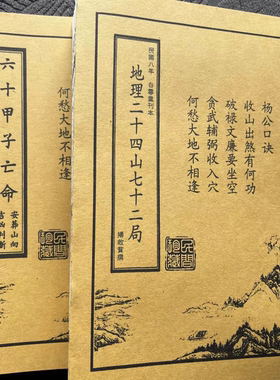 杨公口诀
收山出煞有何功
破禄文廉要坐空
贪武辅弼收入穴
何愁大地不相逢
民國八年
地理二十四山七十二局
何愁大地不相逢
六十甲子亡命
安葬山向
吉凶判断